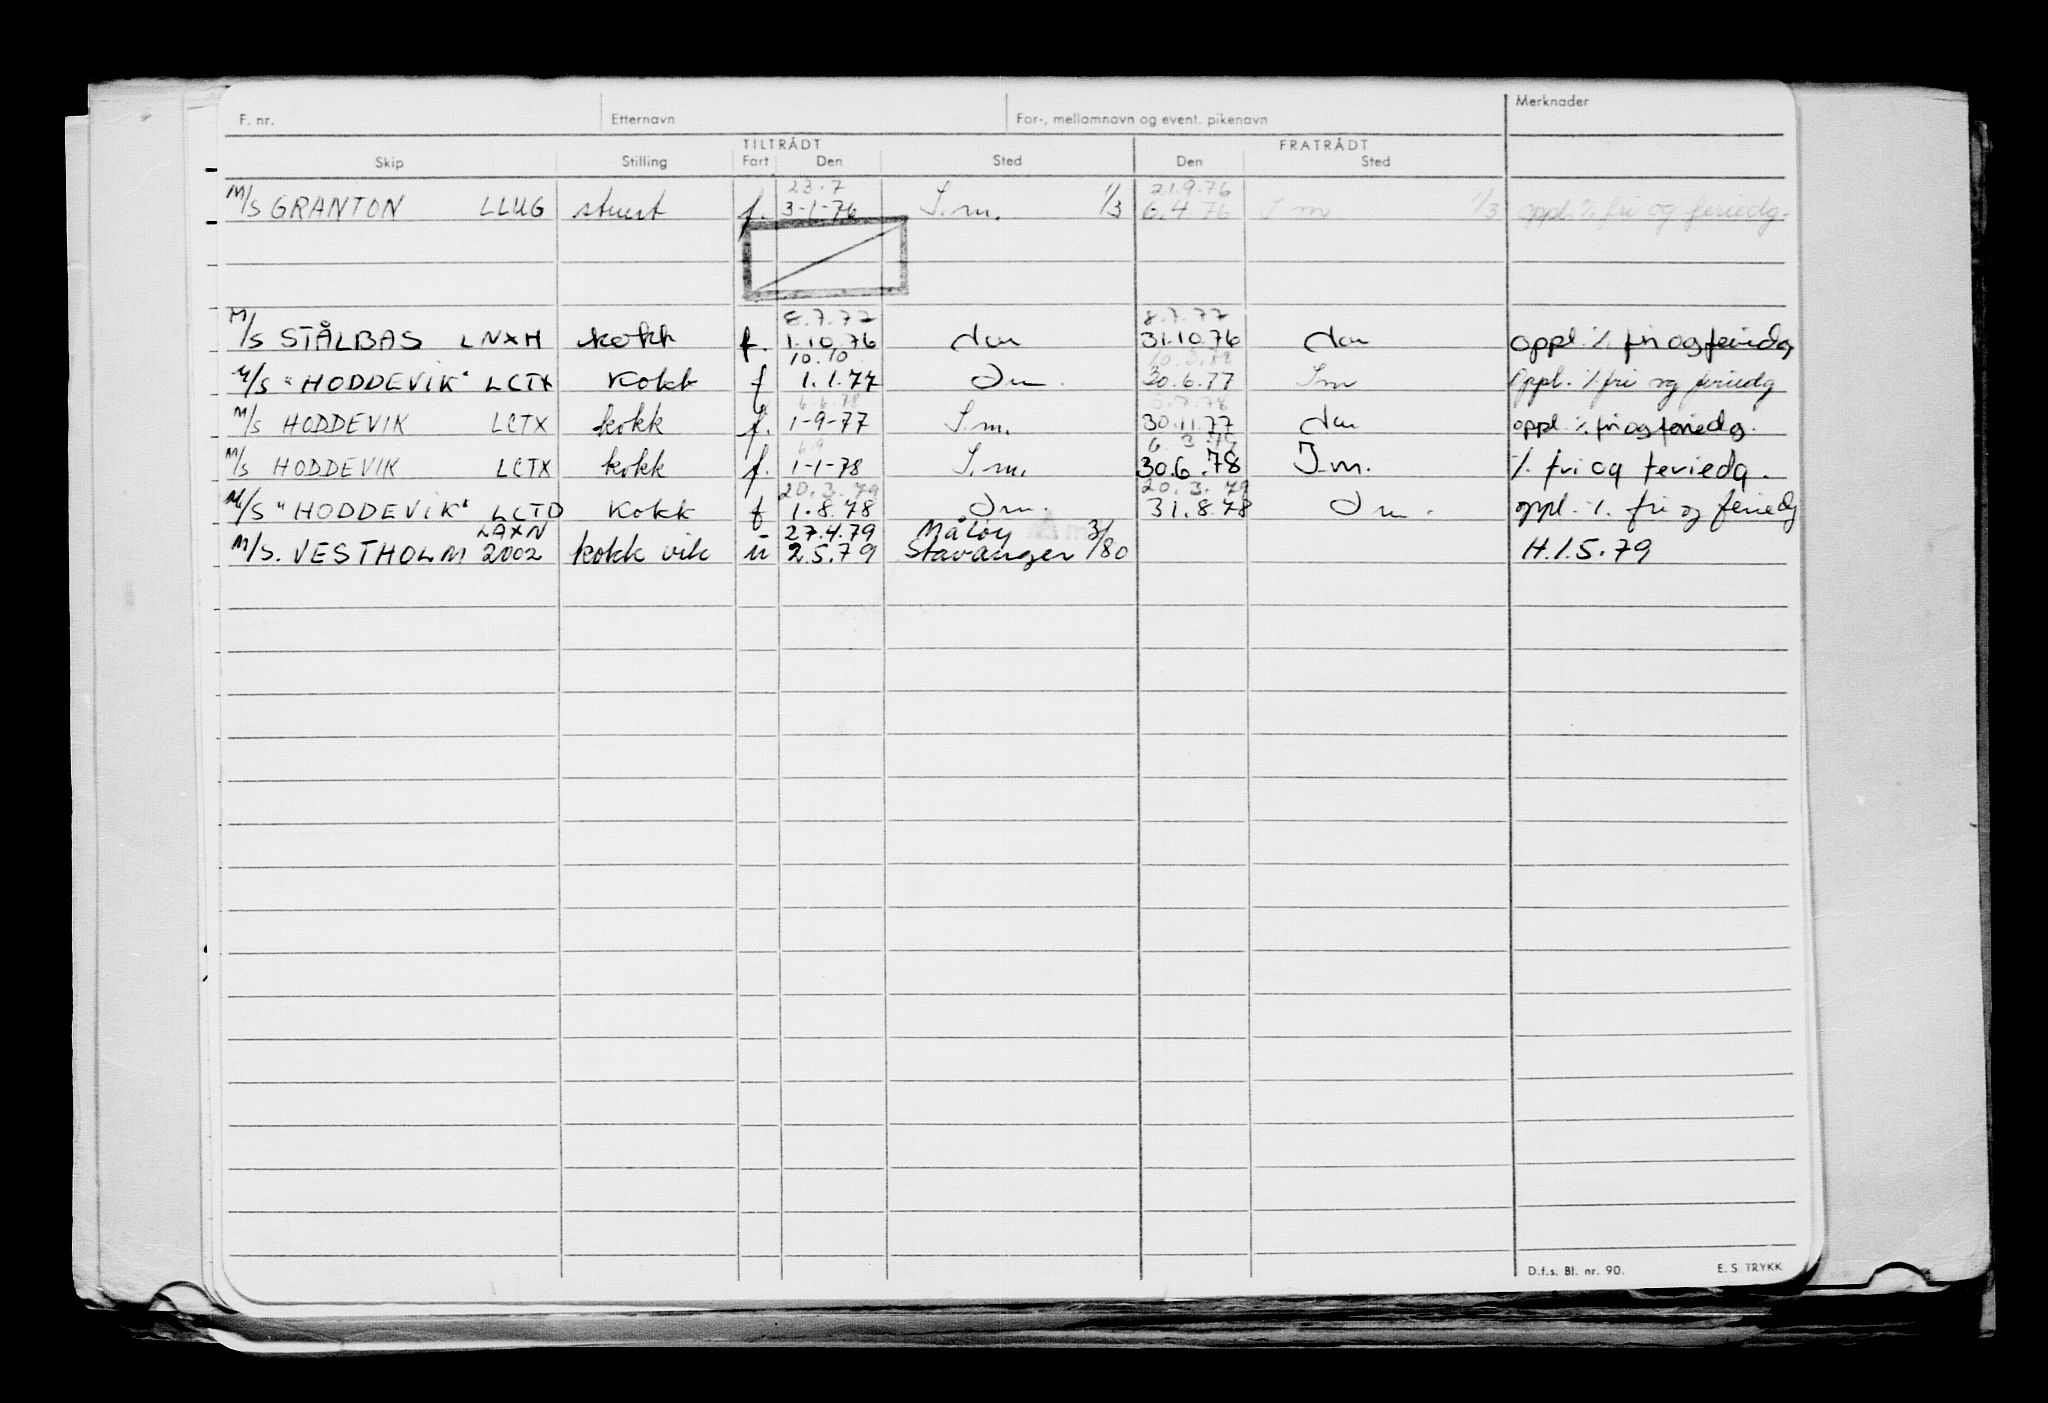 F. nr. Etternavn For-, mellomnavn og event. pikenavn Merknader
TILTRÅDT FRATRÅDT
Skip Stilling Fart Den Sted Den Sted
23.7 21.9.76
M/S GRANTON LLUG stuert f. 3-1-76 S.m. 1/3 6.4.76 S m 1/3 oppl. ./. fri og feriedg.
8.7.77 8.7.77
M/S STÅLBAS LNXH kokk f. 1.10.76 31.10.76 oppl. ./. fri og feriedg
10.10
M/S "HODDEVIK" LCTX Kokk f 1.1.77 30.6.77 Sm Oppl. ./. fri og feriedg
6.6.78 5.7.78
M/S HODDEVIK LCTX kokk f. 1-9-77 S.m. 30.11.77 oppl. ./. fri og feriedg.
6.9
M/S HODDEVIK LCTX kokk f. 1-1-78 S.m. 30.6.78 S.m. ./. fri og feriedg.
20.3.79 20.3.79
M/S "HODDEVIK" LCTD Kokk f 1.8.78 Sm. 31.8.78 Sm. oppl. ./. fri og feriedg
LAXN 27.4.79 Måløy
M/S. VESTHOLM 2002 kokk vik u 2.5.79 Stavanger 3/80 H.1.5.79
D.f.s. Bl. nr. 90. E. S. TRYKK